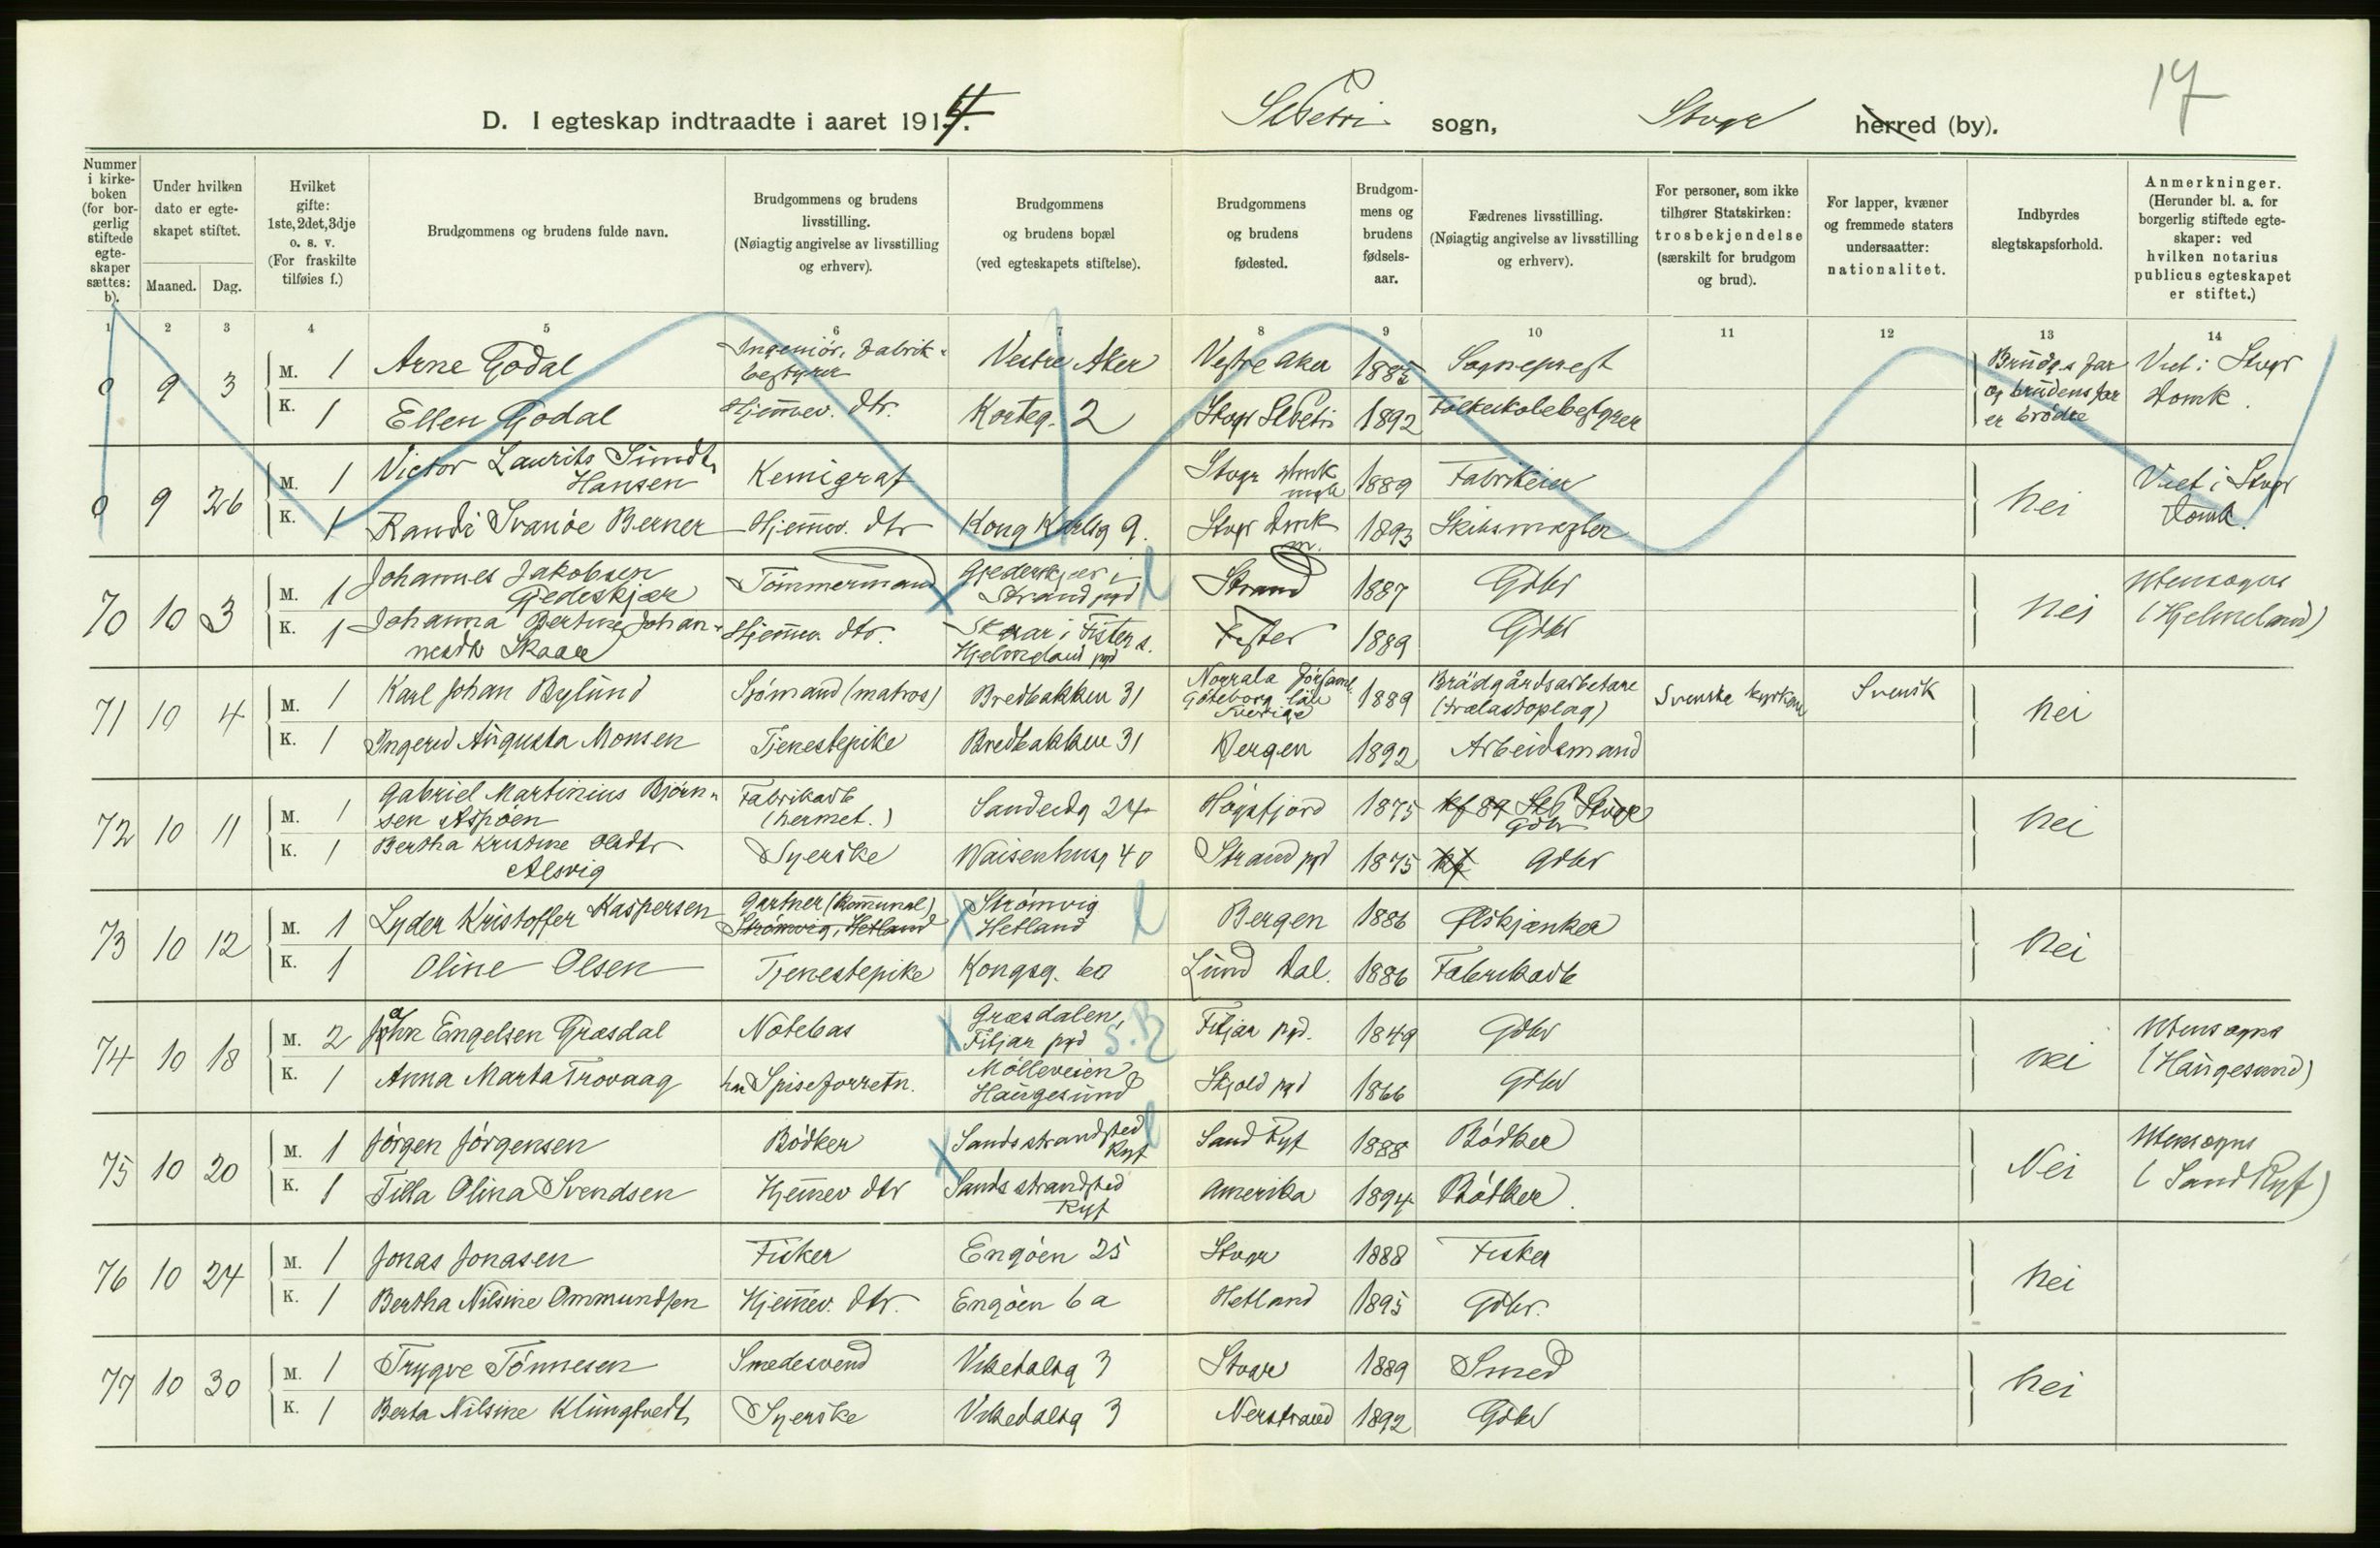 17
D. I egteskap indtraadte i aaret 1914. St Petri sogn, Stvgr herred (by).
Nummer i kirkeboken (for borgerlig stiftede egteskaper sættes: b).
Under hvilken dato er egteskapet stiftet.
Maaned. Dag.
Hvilket gifte: 1ste, 2det, 3dje o. s. v. (For fraskilte tilføies f.)
Brudgommens og brudens fulde navn.
Brudgommens og brudens livsstilling. (Nøiagtig angivelse av livsstilling og erhverv).
Brudgommens og brudens bopæl (ved egteskapets stiftelse).
Brudgommens og brudens fødested.
Brudgommens og brudens fødselsaar.
Fædrenes livsstilling. (Nøiagtig angivelse av livsstilling og erhverv).
For personer, som ikke tilhører Statskirken: trosbekjendelse (særskilt for brudgom og brud).
For lapper, kvæner og fremmede staters undersaatter: nationalitet.
Indbyrdes slegtskapsforhold.
Anmerkninger. (Herunder bl. a. for borgerlig stiftede egteskaper: ved hvilken notarius publicus egteskapet er stiftet.)
1 2 3 4 5 6 7 8 9 10 11 12 13 14
0 9 3 M. 1 Arne Godal Ingeniör, Fabrikbestyrer Vestre Aker Vestre Aker 1885 Sogneprest Brudg.s far og brudens far er brödre Viet i Stvgr Domk.
K. 1 Ellen Godal Hjemmev. dtr. Korteg. 2 Stvgr St Petri 1892 Folkeskolebestyrer
0 9 26 M. 1 Victor Laurits Sundt Hansen Kemigraf Stvgr Domk 1889 Fabrikeier nei Viet i Stvgr Domk.
K. 1 Randi Svanöe Berner Hjemmev. dtr Kong Karlsg 9. Stvgr Domk m. 1893 Skibsmegler
70 10 3 M. 1 Johannes Jakobsen Gjedeskjær Tömmermand Gjedeskjær i Strand pgd Strand 1887 Gdbr nei Utensogns (Hjelmeland)
K. 1 Johanna Bertine Johannesdtr Skaar Hjemmev dtr. Skaar i Fister s. Hjelmeland pgd Fister 1889 Gdbr
71 10 4 M. 1 Karl Johan Bylund Sjömand (matros) Bredbakken 31 Norrala Göteborg län Sverige 1889 Brädgårdsarbetare (trælastoplag) Svenske kyrkan Svensk nei
K. 1 Ingerid Augusta Monsen Tjenestepike Bredbakken 31 Bergen 1892 Arbeidsmand
72 10 11 M. 1 Gabriel Martinius Björnsen Aspöen Fabrikarb (hermet.) Sandeidg 24 Högsfjord 1875 Gdbr nei
K. 1 Bertha Kristine Olsdtr Alsvig Syerske Waisenhusg 40 Strand pgd 1875 Gdbr
73 10 12 M. 1 Lyder Kristoffer Kaspersen Gartner (kommunal) Strömvig, Hetland Strömvig Hetland Bergen 1886 Ölskjænker nei
K. 1 Oline Olsen Tjenestepike Kongsg. 60 Lund Dal. 1886 Fabrikarb
74 10 18 M. 2 Jahn Engelsen Græsdal Notebas Græsdalen, Fitjar pgd Fitjar pgd. 1849 Gdbr nei Utensogns (Haugesund)
K. 1 Anna Marta Trovaag har Spiseforretn. Mölleveien Haugesund Skjold pgd 1866 Gdbr
75 10 20 M. 1 Jörgen Jörgensen Bödker Sands strandsted Ryf Sand Ryf 1888 Bödker Nei Utensogns (Sand Ryf)
K. 1 Tilla Olina Svendsen Hjemmev dtr Sands strandsted Ryf Amerika 1894 Bödker.
76 10 24 M. 1 Jonas Jonasen Fisker Engöen 25 Stvgr 1888 Fisker nei
K. 1 Bertha Nilsine Ommundsen Hjemmev. dtr. Engöen 6 a Hetland 1895 Gdbr.
77 10 30 M. 1 Trygve Tönnesen Smedesvend Vikedalsg 3 Stvgr 1889 Smed nei
K. 1 Berta Nilsine Klungtvedt Syerske Vikedalsg 3 Nerstrand 1892 Gdbr